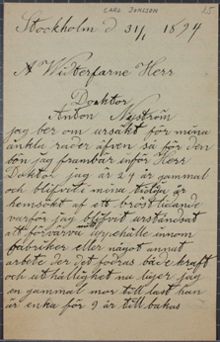 CARL JONSSON
Stockholm d 31/1 1894
Herr
Doktor
Anton Nyström
jag ber om ursäkt för mina
änkla rader äfven så för den
bön jag frambär inför Herr
Doktor jag är 24 år gammal
och blifvit i mina
hemsökt af ett bröst lidande
varför jag blifvit urståndsat
att förvärva uppehälle innom
fabriker eller något annat
arbete der det fodras både kraft
och uthållighet nu liger jag
en gammal mor till last han
är enka för 9 år tillbakas